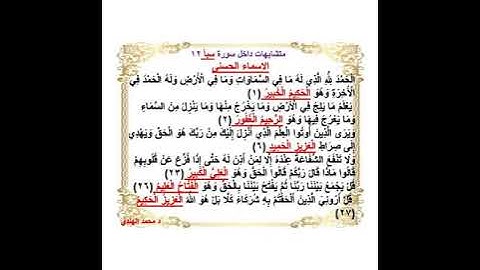 متشابهات داخل سورة سبأ ١٢
الاسماء الحسنى
الْحَمْدُ لِلَّهِ الَّذِي لَهُ مَا فِي السَّمَاوَاتِ وَمَا فِي الْأَرْضِ وَلَهُ الْحَمْدُ فِي
الْآخِرَةِ وَهُوَ الْحَكِيمُ الْخَبِيرُ (١)
يَعْلَمُ مَا يَلِجُ فِي الْأَرْضِ وَمَا يَخْرُجُ مِنْهَا وَمَا يَنْزِلُ مِنَ السَّمَاءِ
وَمَا يَعْرُجُ فِيهَا وَهُوَ الرَّحِيمُ الْغَفُورُ (٢)
وَيَرَى الَّذِينَ أُوتُوا الْعِلْمَ الَّذِي أُنْزِلَ إِلَيْكَ مِنْ رَبِّكَ هُوَ الْحَقَّ وَيَهْدِي
إِلَى صِرَاطِ الْعَزِيزِ الْحَمِيدِ (٦)
وَلَا تَنْفَعُ الشَّفَاعَةُ عِنْدَهُ إِلَّا لِمَنْ أَذِنَ لَهُ حَتَّى إِذَا فُزِّعَ عَنْ قُلُوبِهِمْ
قَالُوا مَاذَا قَالَ رَبُّكُمْ قَالُوا الْحَقَّ وَهُوَ الْعَلِيُّ الْكَبِيرُ (٢٣)
قُلْ يَجْمَعُ بَيْنَنَا رَبُّنَا ثُمَّ يَفْتَحُ بَيْنَنَا بِالْحَقِّ وَهُوَ الْفَتَّاحُ الْعَلِيمُ (٢٦)
قُلْ أَرُونِيَ الَّذِينَ أَلْحَقْتُمْ بِهِ شُرَكَاءَ كَلَّا بَلْ هُوَ اللَّهُ الْعَزِيزُ الْحَكِيمُ
(٢٧)
د محمد الهندي